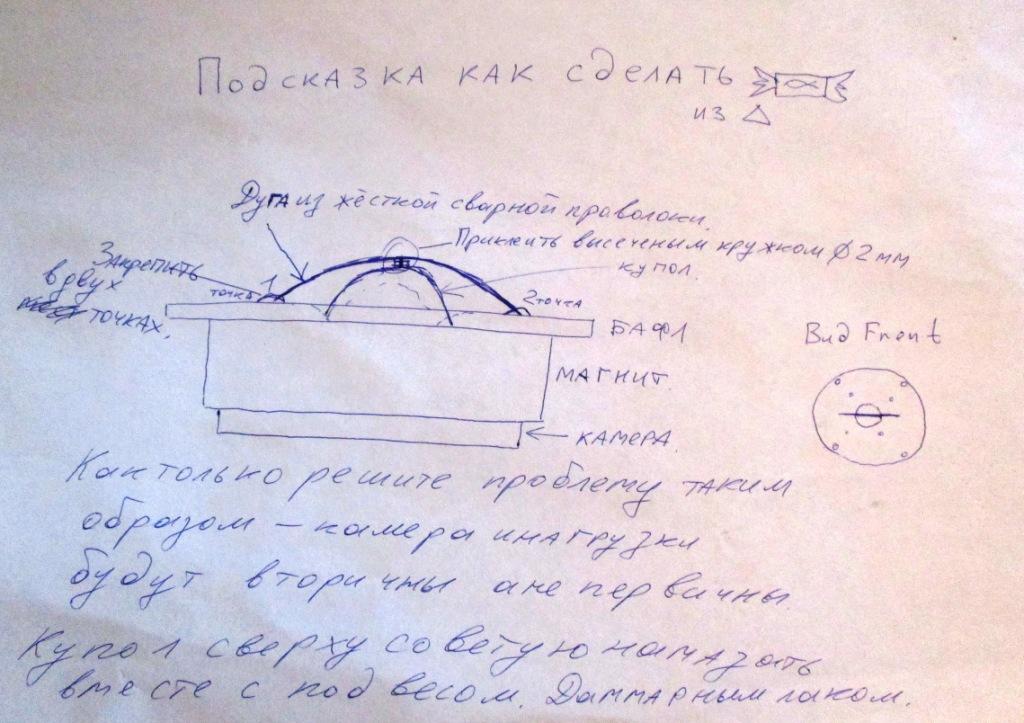 Подсказка как сделать
из
Дуга из жёсткой сварной проволоки.
Приклеить высеченым кружком Ø 2мм
купол.
Закрепить
в двух
точках.
точка 1
2 точка
БАФЛ
Вид Front
МАГНИТ.
КАМЕРА.
Как только решите проблему таким
образом – камера и нагрузки
будут вторичны а не первичны.
Купол сверху советую намазать
вместе с подвесом. Даммарным лаком.